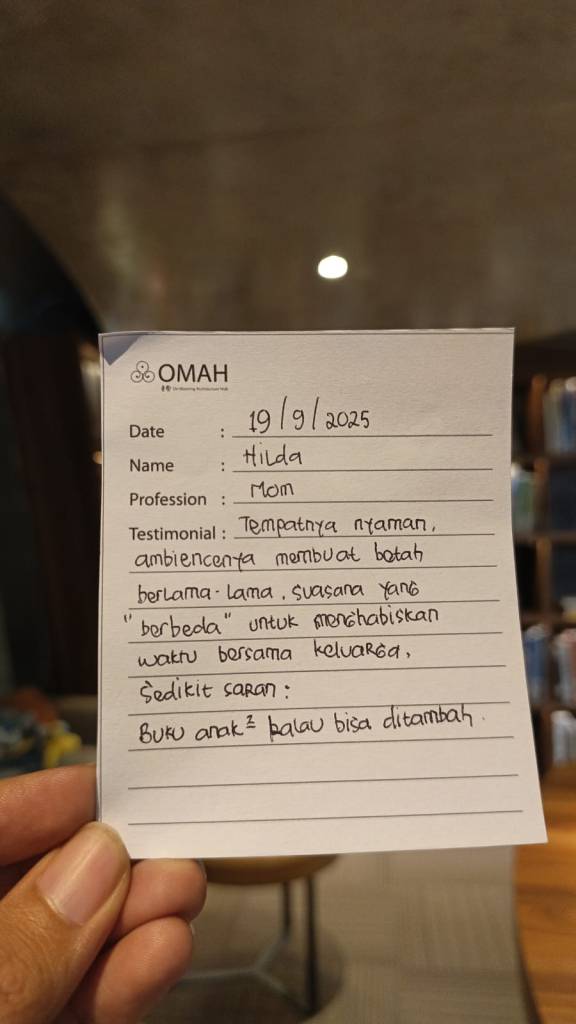 OMAH
Date : 19/9/2025
Name : Hilda
Profession : Mom
Testimonial : Tempatnya nyaman,
ambiencenya membuat betah
berlama-lama, suasana yang
"berbeda" untuk menghabiskan
waktu bersama keluarga,
Sedikit saran :
Buku anak² kalau bisa ditambah.